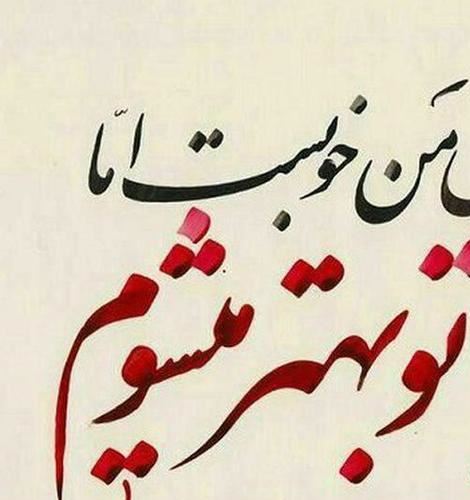 من خوبست امّا
تو بهتر میشوم